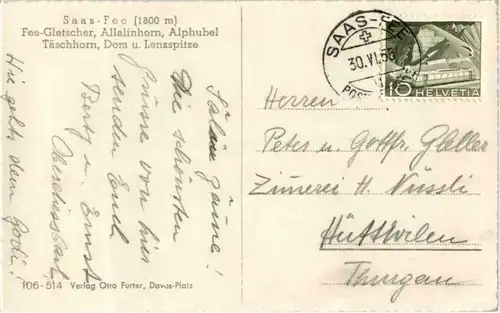 Saas-Fee (1800 m)
Fee-Gletscher, Allalinhorn, Alphubel
Täschhorn, Dom u. Lenzspitze
Salü zäme!
Die schönsten
Grüsse von hier
senden Euch
Berty u. Ernst
Hie gehts dem Godi!
106-514 Verlag Otto Furter, Davos-Platz
SAAS-FEE
30.VI.53
POST
10 HELVETIA
Herren
Peter u. Gottfr. Geller
Zimerei H. Nüssli
Hüttwilen
Thurgau